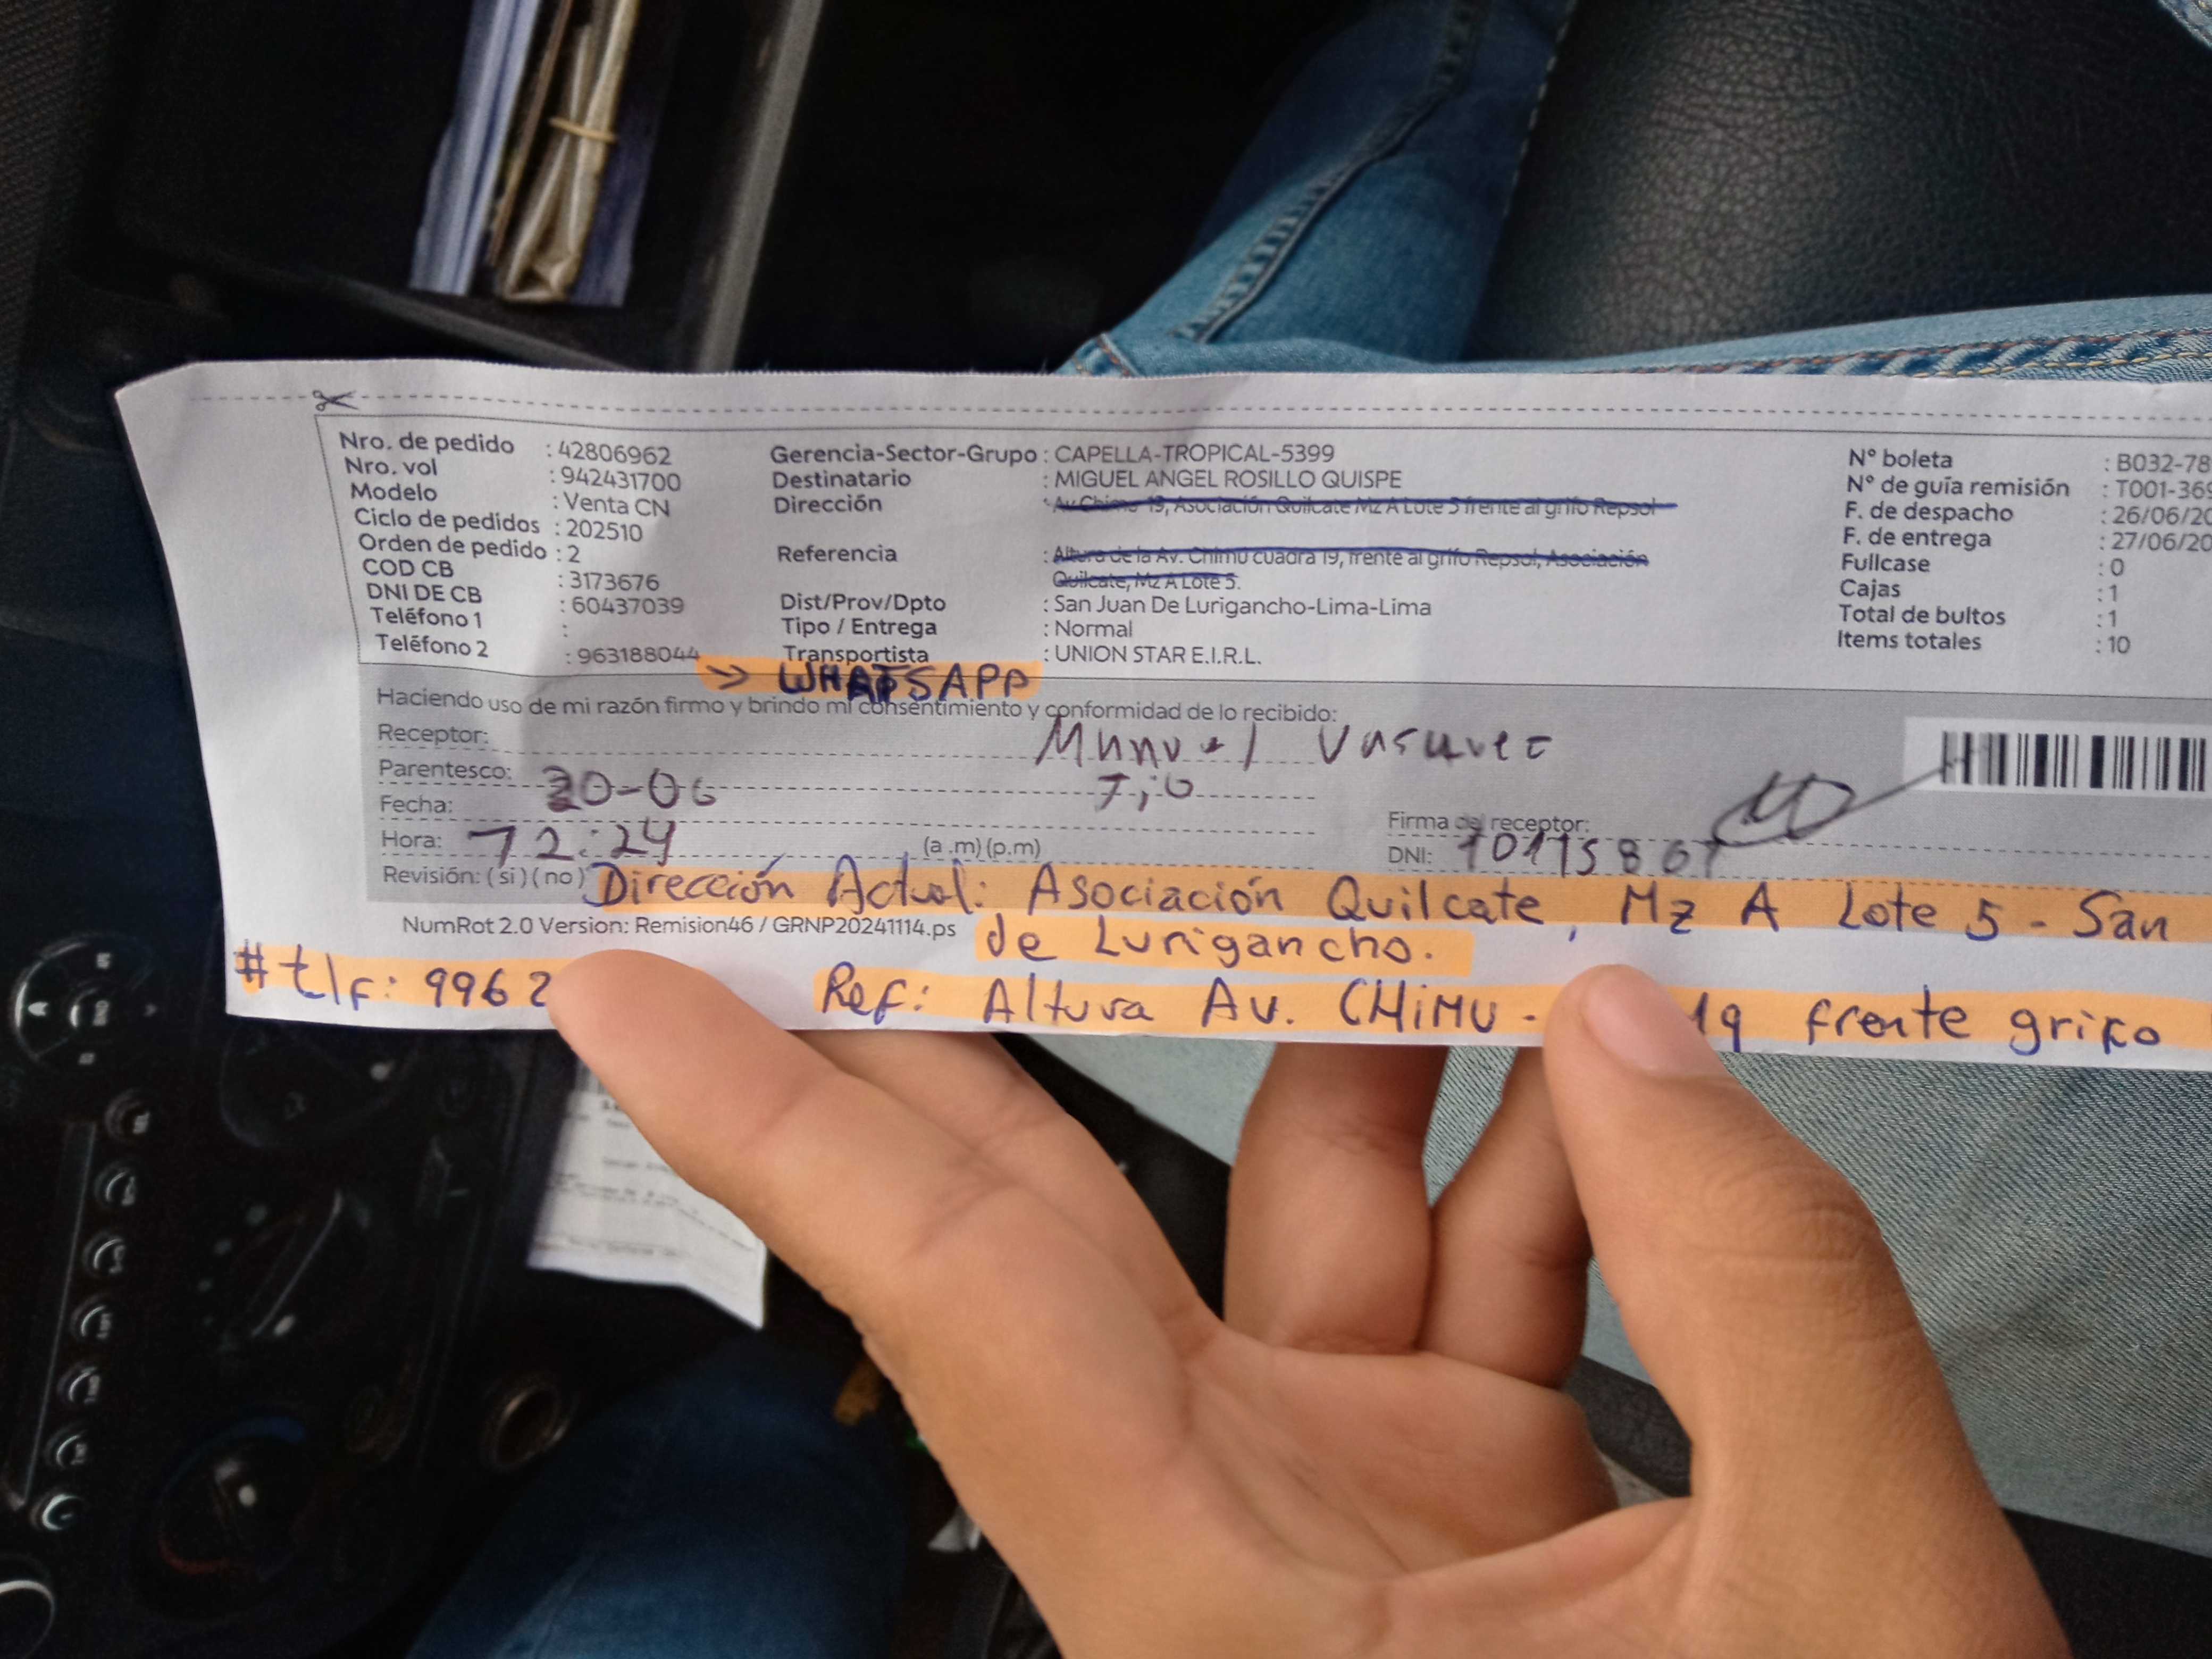 Nro. de pedido : 42806962
Nro. vol : 942431700
Modelo : Venta CN
Ciclo de pedidos : 202510
Orden de pedido : 2
COD CB : 3173676
DNI DE CB : 60437039
Teléfono 1 :
Teléfono 2 : 963188044 → WHATSAPP
Gerencia-Sector-Grupo : CAPELLA-TROPICAL-5399
Destinatario : MIGUEL ANGEL ROSILLO QUISPE
Dirección : Av Chimu 19, Asociación Quilcate Mz A Lote 5 frente al grifo Repsol
Referencia : Altura de la Av. Chimú cuadra 19, frente al grifo Repsol, Asociación
Quilcate, Mz A Lote 5.
Dist/Prov/Dpto : San Juan De Lurigancho-Lima-Lima
Tipo / Entrega : Normal
Transportista : UNION STAR E.I.R.L.
Nº boleta : B032-78
Nº de guía remisión : T001-369
F. de despacho : 26/06/20
F. de entrega : 27/06/20
Fullcase : 0
Cajas : 1
Total de bultos : 1
Items totales : 10
Haciendo uso de mi razón firmo y brindo mi consentimiento y conformidad de lo recibido:
Receptor:
Parentesco:
Fecha: 20-06
Hora: 12:24 (a .m) (p.m)
Firma del receptor:
DNI:
Revisión: (si) (no)
Dirección Actual: Asociación Quilcate, Mz A Lote 5 - San
de Lurigancho.
NumRot 2.0 Version: Remision46 / GRNP20241114.ps
# tlf: 9962
Ref: Altura Av. CHIMU - 19 frente grifo